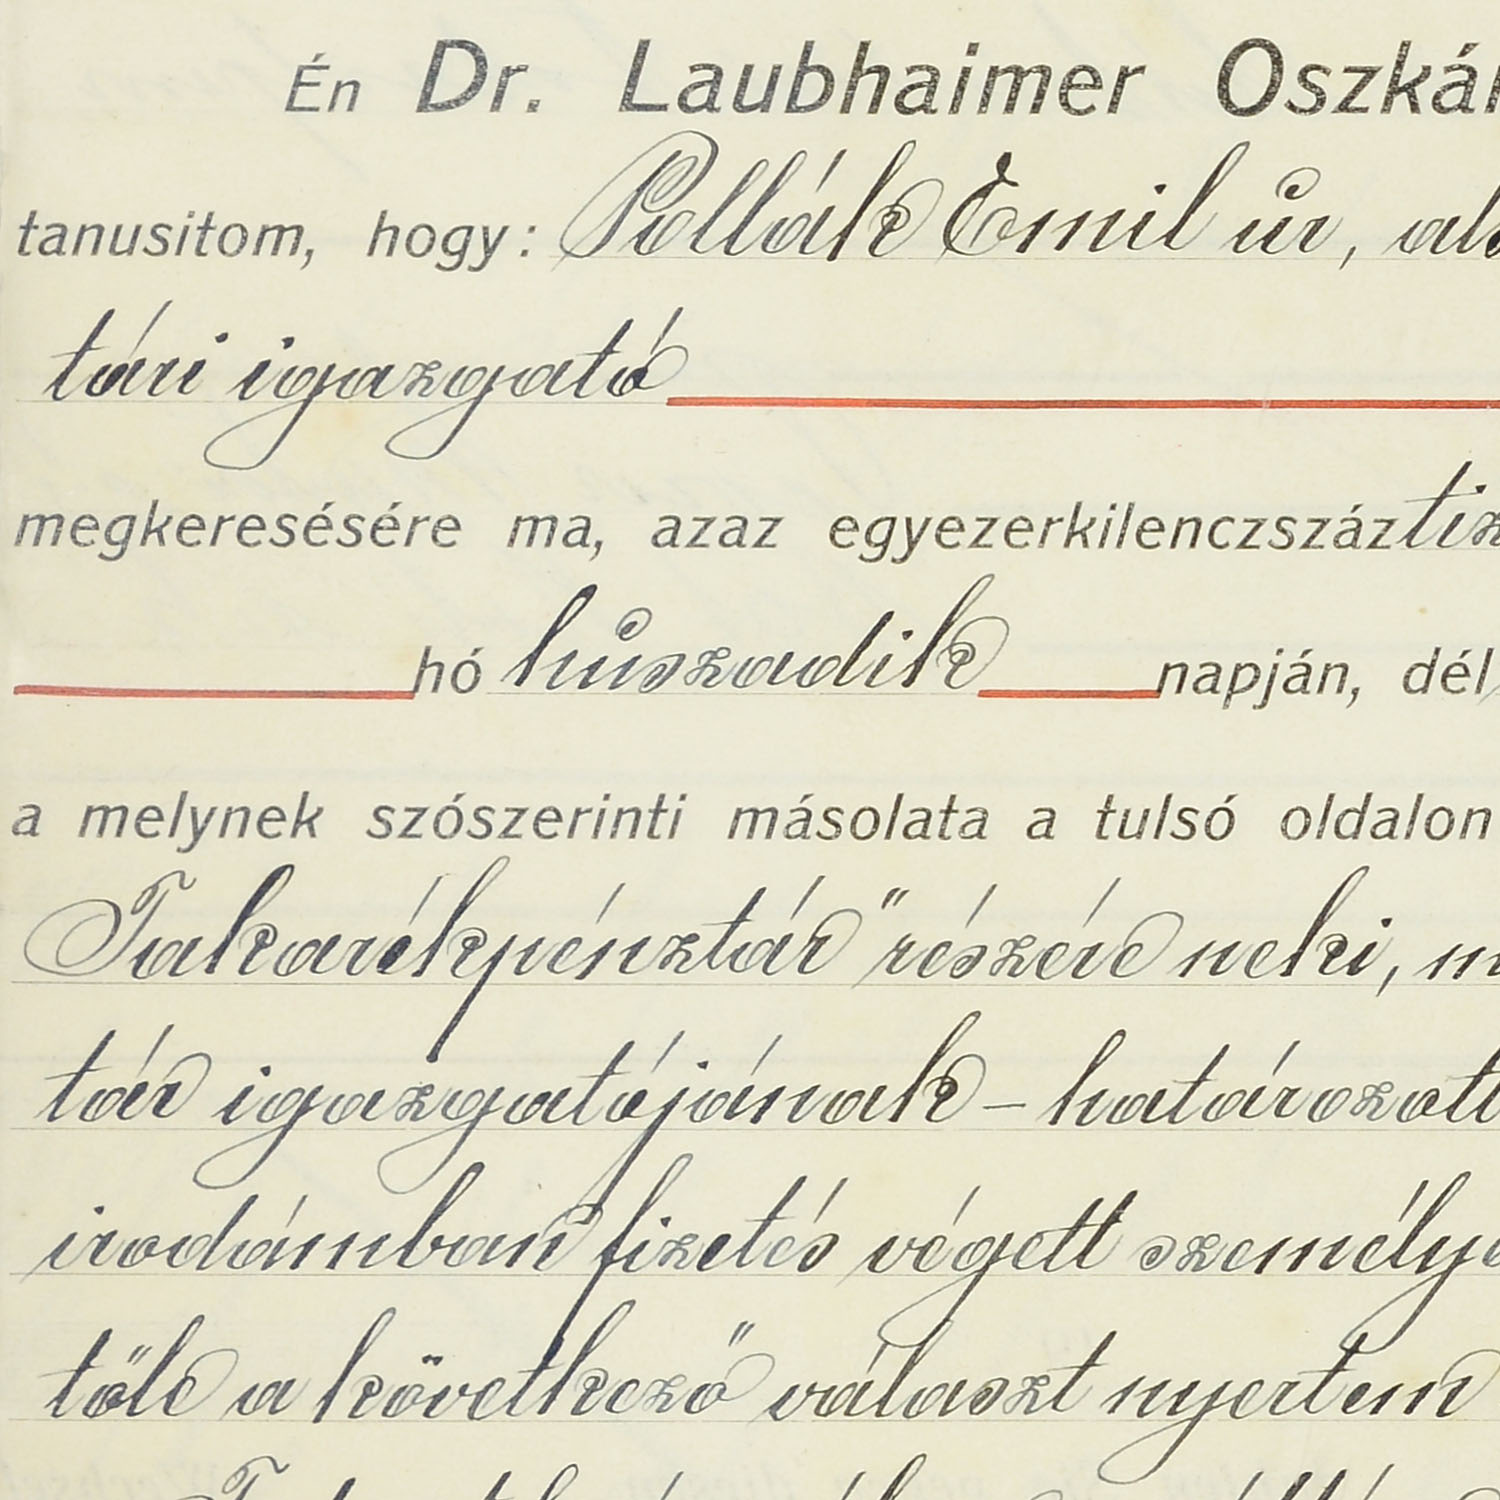 Én Dr. Laubhaimer Oszkár
tanusitom, hogy: Pollák Emil úr,
tári igazgató
megkeresésére ma, azaz egyezerkilenczszáztiz
hó huszadik napján, dél
a melynek szószerinti másolata a tulsó oldalon
Takarékpénztár" részére neki,
tár igazgatójának – határozott
irodámban fizetés végett személye
tőle a következő választ nyertem